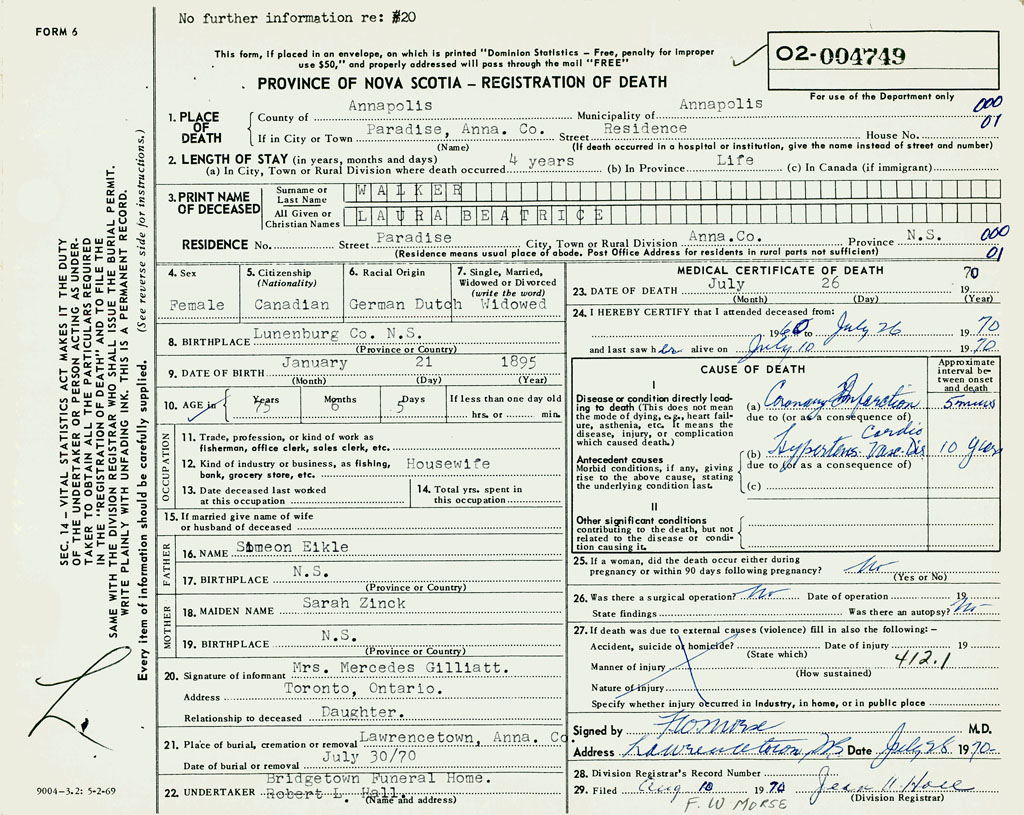 No further information re: #20
FORM 6
This form, if placed in an envelope, on which is printed "Dominion Statistics – Free, penalty for improper
use $50," and properly addressed will pass through the mail "FREE"
O2-004749
PROVINCE OF NOVA SCOTIA – REGISTRATION OF DEATH
For use of the Department only
1. PLACE OF DEATH
County of Annapolis Municipality of Annapolis 000
If in City or Town Paradise, Anna. Co. Street Residence House No. 01
(Name) (If death occurred in a hospital or institution, give the name instead of street and number)
2. LENGTH OF STAY (in years, months and days)
(a) In City, Town or Rural Division where death occurred 4 years (b) In Province Life (c) In Canada (if immigrant)
3. PRINT NAME OF DECEASED
Surname or Last Name WALKER
All Given or Christian Names LAURA BEATRICE
RESIDENCE No. Street Paradise City, Town or Rural Division Anna.Co. Province N.S. 000
(Residence means usual place of abode. Post Office Address for residents in rural parts not sufficient) 01
4. Sex Female
5. Citizenship (Nationality) Canadian
6. Racial Origin German Dutch
7. Single, Married, Widowed or Divorced (write the word) Widowed
8. BIRTHPLACE Lunenburg Co. N.S.
(Province or Country)
9. DATE OF BIRTH January 21 1895
(Month) (Day) (Year)
10. AGE in Years 75 Months 6 Days 5 If less than one day old
hrs. or min.
OCCUPATION
11. Trade, profession, or kind of work as
fisherman, office clerk, sales clerk, etc.
12. Kind of industry or business, as fishing,
bank, grocery store, etc. Housewife
13. Date deceased last worked
at this occupation
14. Total yrs. spent in
this occupation
15. If married give name of wife
or husband of deceased
FATHER
16. NAME Simeon Eikle
17. BIRTHPLACE N.S.
(Province or Country)
MOTHER
18. MAIDEN NAME Sarah Zinck
19. BIRTHPLACE N.S.
(Province or Country)
20. Signature of informant Mrs. Mercedes Gilliatt.
Address Toronto, Ontario.
Relationship to deceased Daughter.
21. Place of burial, cremation or removal Lawrencetown, Anna. Co.
Date of burial or removal July 30/70
Bridgetown Funeral Home.
22. UNDERTAKER Robert L. Hall.
(Name and address)
MEDICAL CERTIFICATE OF DEATH
23. DATE OF DEATH July 26 19 70
(Month) (Day) (Year)
24. I HEREBY CERTIFY that I attended deceased from:
1960 to July 26 1970
and last saw her alive on July 10 1970
CAUSE OF DEATH
Approximate interval between onset and death
I
Disease or condition directly leading to death (This does not mean the mode of dying, e.g., heart failure, asthenia, etc. It means the disease, injury, or complication which caused death.)
(a) Coronary Infarction 5 mins
due to (or as a consequence of)
Antecedent causes
Morbid conditions, if any, giving rise to the above cause, stating the underlying condition last.
(b) Hypertens. Cardio Vasc Dis 10 years
due to (or as a consequence of)
(c)
II
Other significant conditions
contributing to the death, but not related to the disease or condition causing it.
25. If a woman, did the death occur either during
pregnancy or within 90 days following pregnancy? No
(Yes or No)
26. Was there a surgical operation? No Date of operation 19
State findings Was there an autopsy? No
27. If death was due to external causes (violence) fill in also the following: –
Accident, suicide or homicide? Date of injury 19
(State which) 412.1
Manner of injury
(How sustained)
Nature of injury
Specify whether injury occurred in industry, in home, or in public place
Signed by F W Morse M.D.
Address Lawrencetown, NS Date July 28 1970
28. Division Registrar's Record Number
29. Filed Aug 10 1970 Jean H Hall
(Division Registrar)
F. W MORSE
SEC. 14 – VITAL STATISTICS ACT MAKES IT THE DUTY
OF THE UNDERTAKER OR PERSON ACTING AS UNDER-
TAKER TO OBTAIN ALL THE PARTICULARS REQUIRED
IN THE "REGISTRATION OF DEATH" AND TO FILE THE
SAME WITH THE DIVISION REGISTRAR WHO SHALL ISSUE THE BURIAL PERMIT.
WRITE PLAINLY WITH UNFADING INK. THIS IS A PERMANENT RECORD.
Every item of information should be carefully supplied. (See reverse side for instructions.)
L.
9004-3.2: 5-2-69